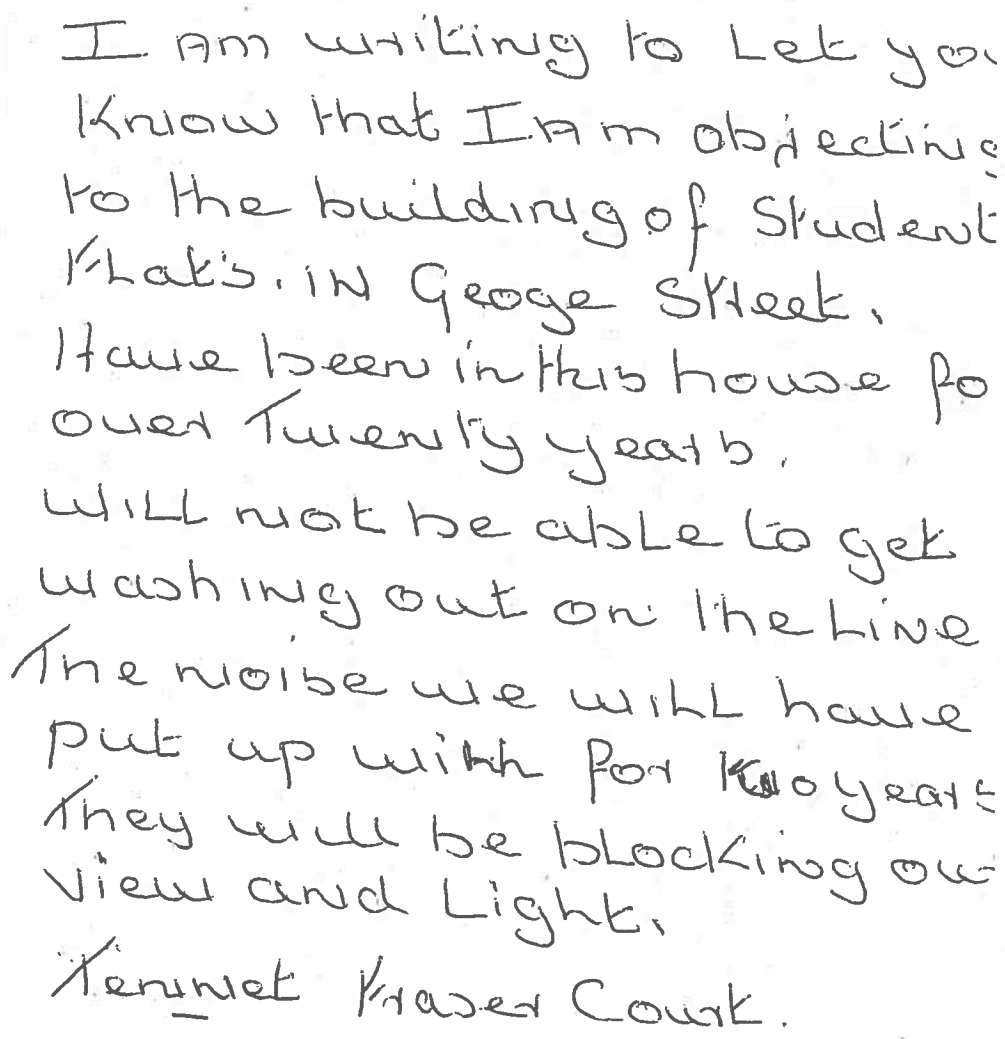 I Am writing to Let you
Know that I Am objecting
to the building of Student
Flat's. IN Geoge Street.
Have been in this house fo
over Twenty years.
WiLL not be able to get
washing out on the Line
The noise we wiLL have
put up with for two years
They will be bLocking ou
View and Light.
Tennet Fraser Court.